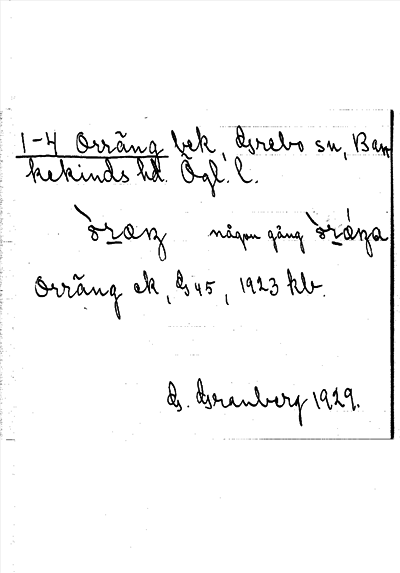 1-4 Orräng bek, Grebo sn, Ban
kekinds hd. Ögl. l.
någon gång
Orräng ek, G 45, 1923 kb.
G. Granberg 1929.